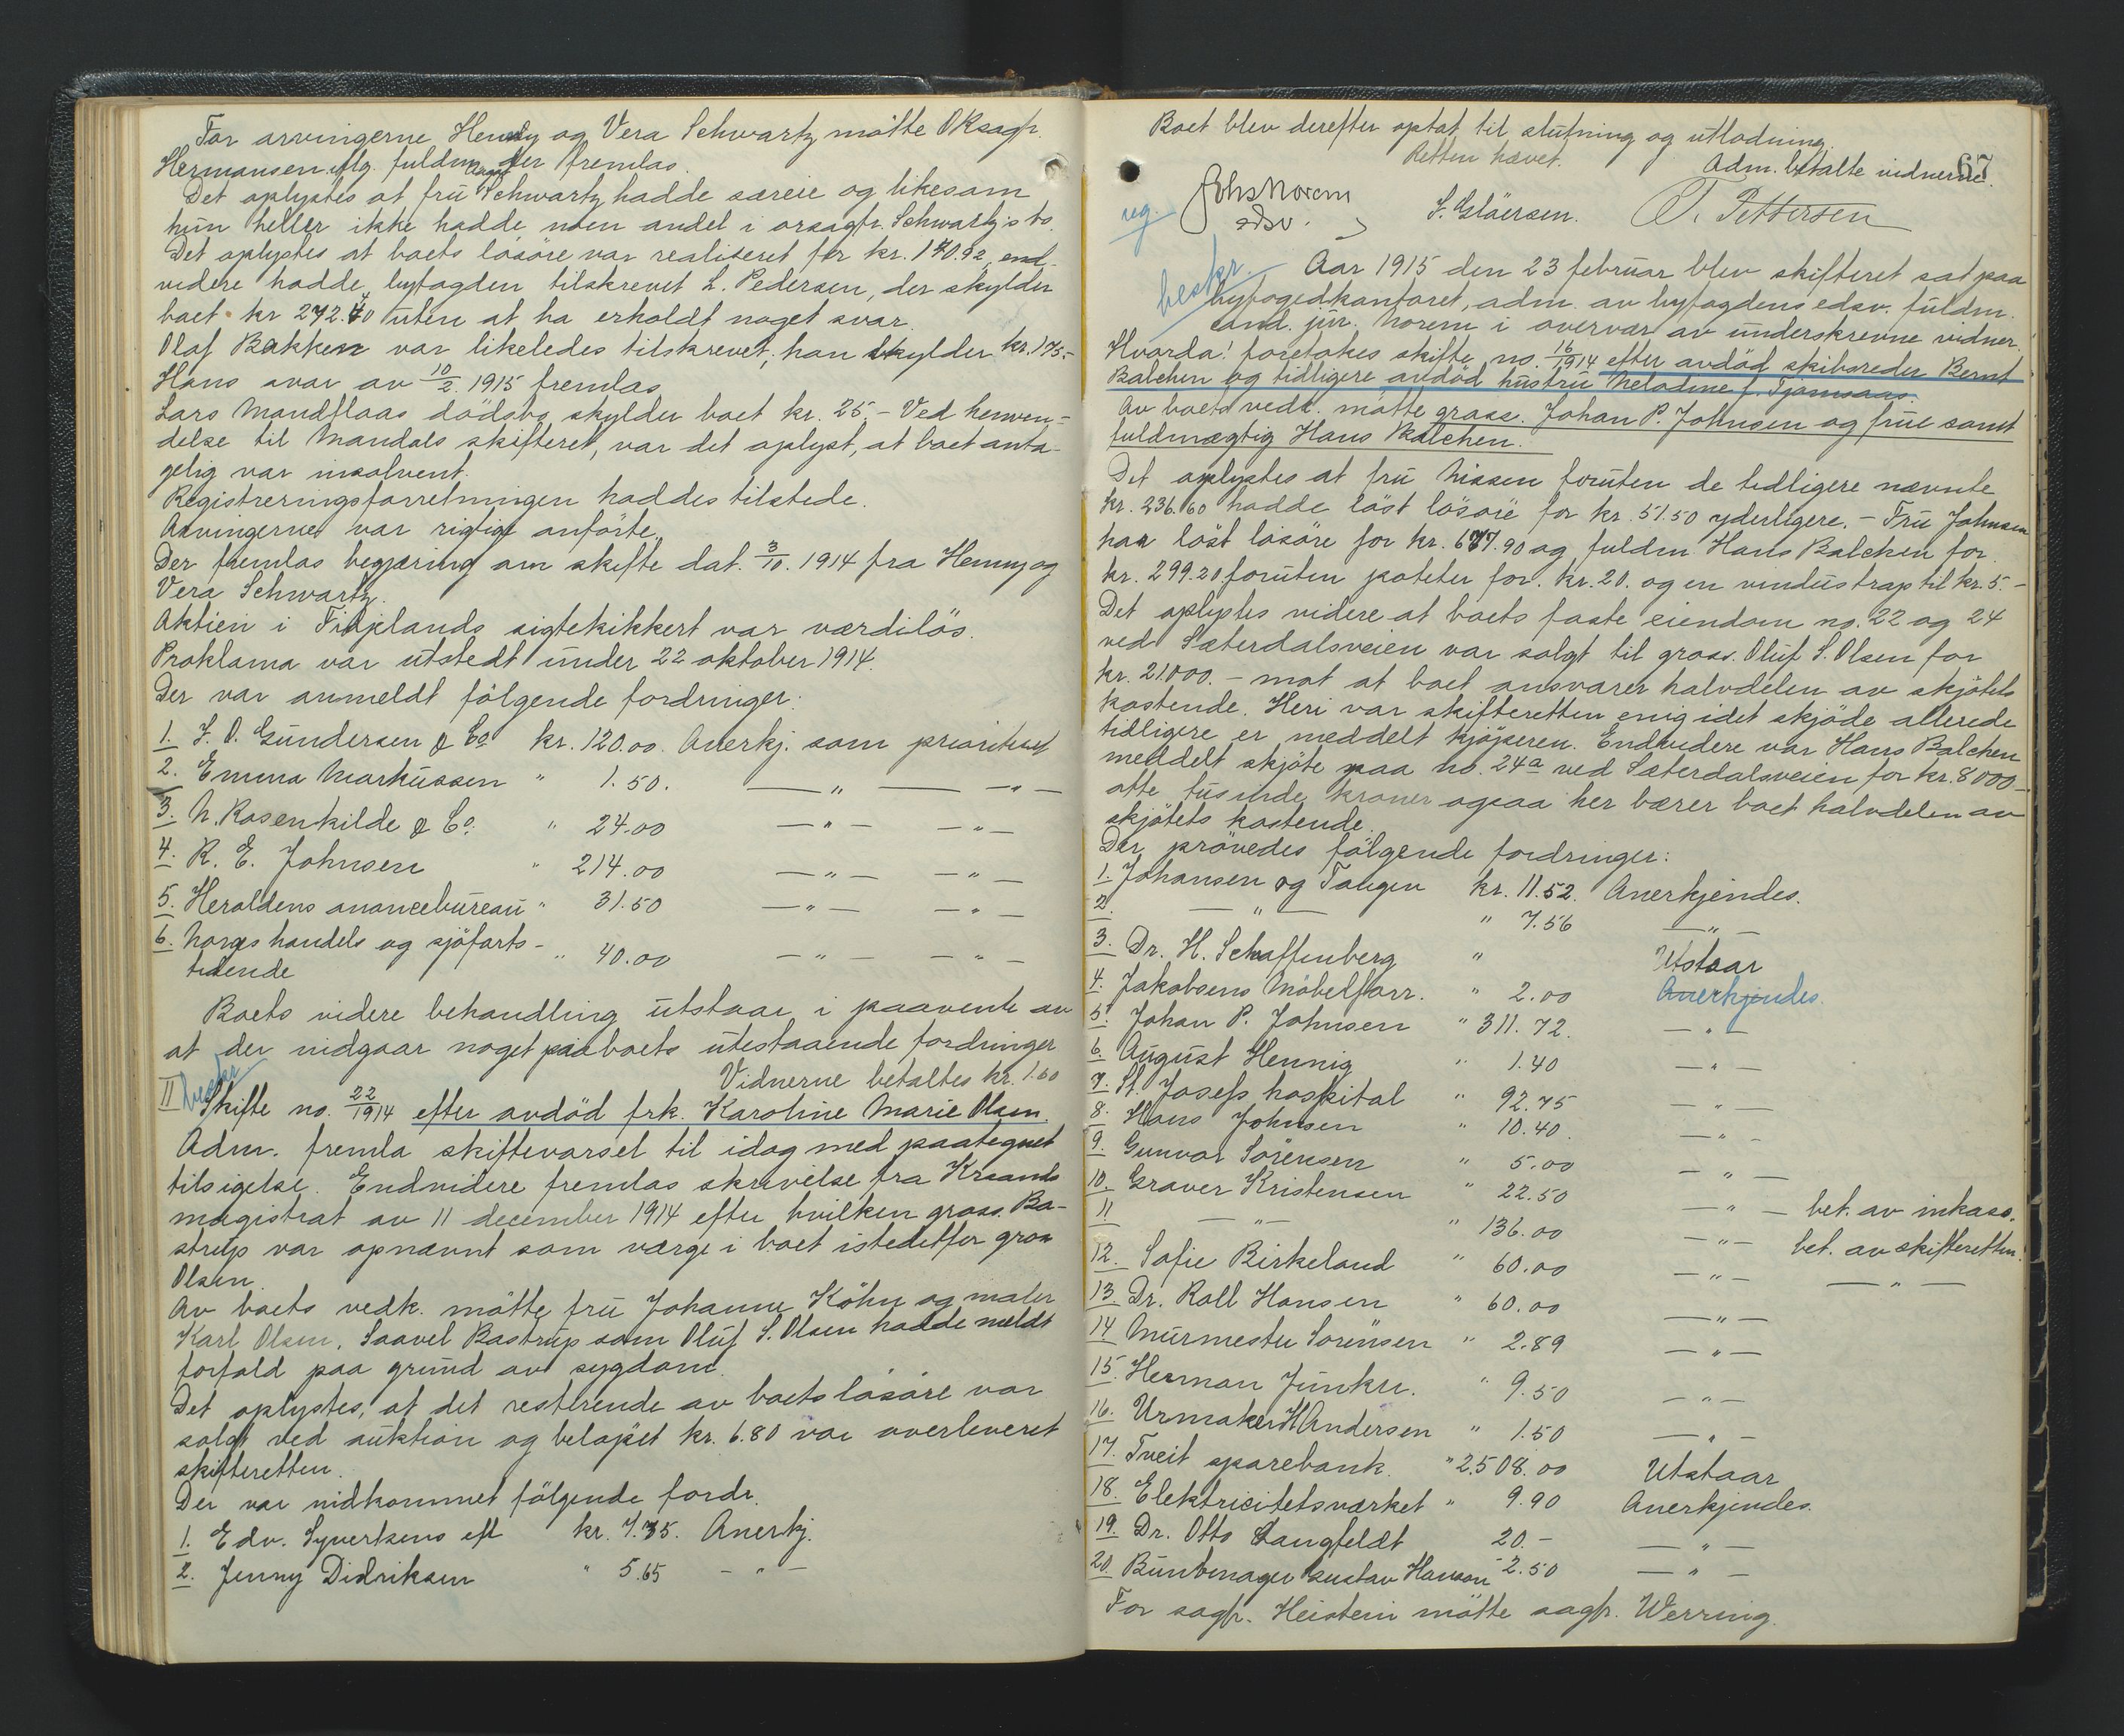 For arvingerne Henny og Vera Schwartz mötte ORsagfr.
Hermansen eftg. fuldm. Aagot der fremlas.
Det oplystes at fru Schwartz hadde særeie og likesom
hun heller ikke hadde noen andel i orsagfr. Schwartz's bo.
Det oplystes at boets lösöre var realiseret for kr. 170.92, end-
videre hadde byfogden tilskrevet L. Pedersen, der skylder
boet kr 272.40 uten at ha erholdt noget svar.
Olaf Bakken var likeledes tilskrevet, han skylder kr. 175.-
Hans svar av 10/2. 1915 fremlas
Lars Mandflaas dödsbo skylder boet kr. 25,- Ved henven-
delse til Mandals skifteret, var det oplyst, at boet anta-
gelig var insolvent.
Registreringsforretningen haddes tilstede.
Arvingerne var rigtige anförte.
Der fremlas begjæring om skifte dat. 3/10. 1914 fra Henny og
Vera Schwartz.
Aktien i Fidjelands sigtekikkert var værdilös.
Proklama var utstedt under 22 oktober 1914.
Der var anmeldt fölgende fordringer:
1. J. O. Gundersen & Co kr. 120.00. Anerkj. som prioriteret
2. Emma Markussen " 1.50. — " — — " —
3. N. Rosenkilde & Co. " 24.00 — " — — " —
4. R. E. Johnsen " 214.00 — " — — " —
5. Heroldens anoncebureau " 31.50 — " — — " —
6. Norges handels og sjöfarts-
tidende " 40.00 — " — — " —
Boets videre behandling utstaar i paavente av
at der indgaar noget paa boets utestaaende fordringer
Vidnerne betaltes kr. 1.60
II beskr. Skifte no. 22/1914 efter avdöd frk. Karoline Marie Olsen.
Adm. fremla skiftevarsel til idag med paategnet
tilsigelse. Endvidere fremlas skrivelse fra Krsands
magistrat av 11 december 1914 efter hvilken gross. Ba-
strup var opnævnt som værge i boet istedetfor gross
Olsen.
Av boets vedk. mötte fru Johanne Köhn og maler
Karl Olsen, Saavel Bastrup som Oluf S. Olsen hadde meldt
forfald paa grund av sygdom.
Det oplystes, at det resterende av boets lösöre var
solgt ved auktion og belöpet kr. 6.80 var overleveret
skifteretten.
Der var indkommet fölgende fordr.
1. Edv. Syvertsens eft kr. 7.35. Anerkj.
2. Jenny Didriksen " 5.65 - " -
67
Boet blev derefter optat til slutning og utlodning.
Retten hævet.
Adm. betalte vidnerne.
reg. Johs Norem S. Glöersen. T. Pettersen
edsv.
beskr. Aar 1915 den 23 februar blev skifteret sat paa
byfogedkontoret, adm. av byfogdens edsv. fuldm.
cand. jur. Norem i overvær av underskrevne vidner.
Hvorda! foretokes skifte no. 16/1914 efter avdöd skibsreder Bernt
Balchen og tidligere avdöd hustru Meladine f. Tjomsaas.
Av boets vedk. mötte gross. Johan P. Johnsen og frue samt
fuldmægtig Hans Balchen.
Det oplystes at fru Nissen foruten de tidligere nævnte
kr. 236.60 hadde löst lösöre for kr. 51.50 yderligere. - Fru Johnsen
har löst lösöre for kr. 677.90 og fuldm. Hans Balchen for
kr. 299.20 foruten poteter for kr. 20. og en vindustrap til kr. 5.-
Det oplystes videre at boets faste eiendom no. 22 og 24
ved Sæterdalsveien var solgt til gross. Oluf S. Olsen for
kr. 21000.- mot at boet ansvarer halvdelen av skjötets
kostende. Heri var skifteretten enig idet skjöde allerede
tidligere er meddelt kjöperen. Endvidere var Hans Balchen
meddelt skjöte paa no. 24a ved Sæterdalsveien for kr. 8000-
otte tusinde kroner ogsaa her bærer boet halvdelen av
skjötets kostende.
Der prövedes fölgende fordringer:
1. Johansen og Tangen kr. 11.52. Anerkjendes.
2. — " — " 7.56 — " —
3. Dr. H. Schaffenberg " Utstaar
4. Jakobsens Möbelforr. " 2.00 Anerkjendes.
5. Johan P. Johnsen " 311.72. — " —
6. August Hennig " 1.40 — " —
7. St. Josefs hospital " 92.75 — " —
8. Hans Johnsen " 10.40. — " —
9. Gunvor Sörensen " 5.00 — " —
10. Graver Kristensen " 22.50 — " — bet. av inkass.
11 — " — " 136.00 — " — bet. av skifteretten.
12. Sofie Birkeland " 60.00 — " — — " —
13. Dr. Roll Hansen " 60.00 — " —
14 Murmester Sorensen " 2.89 — " —
15. Herman Junker. " 9.50 — " —
16. Urmaker H Andersen " 1.50 — " —
17. Tveit sparebank. " 2.508.00 Utstaar
18. Elektricitetsværket " 9.90 Anerkjendes.
19. Dr. Otto Langfeldt 20.- — " —
20. Buntmager Gustav Hanson " 2.50 — " —
For sagfr. Heistein mötte sagfr. Werring.